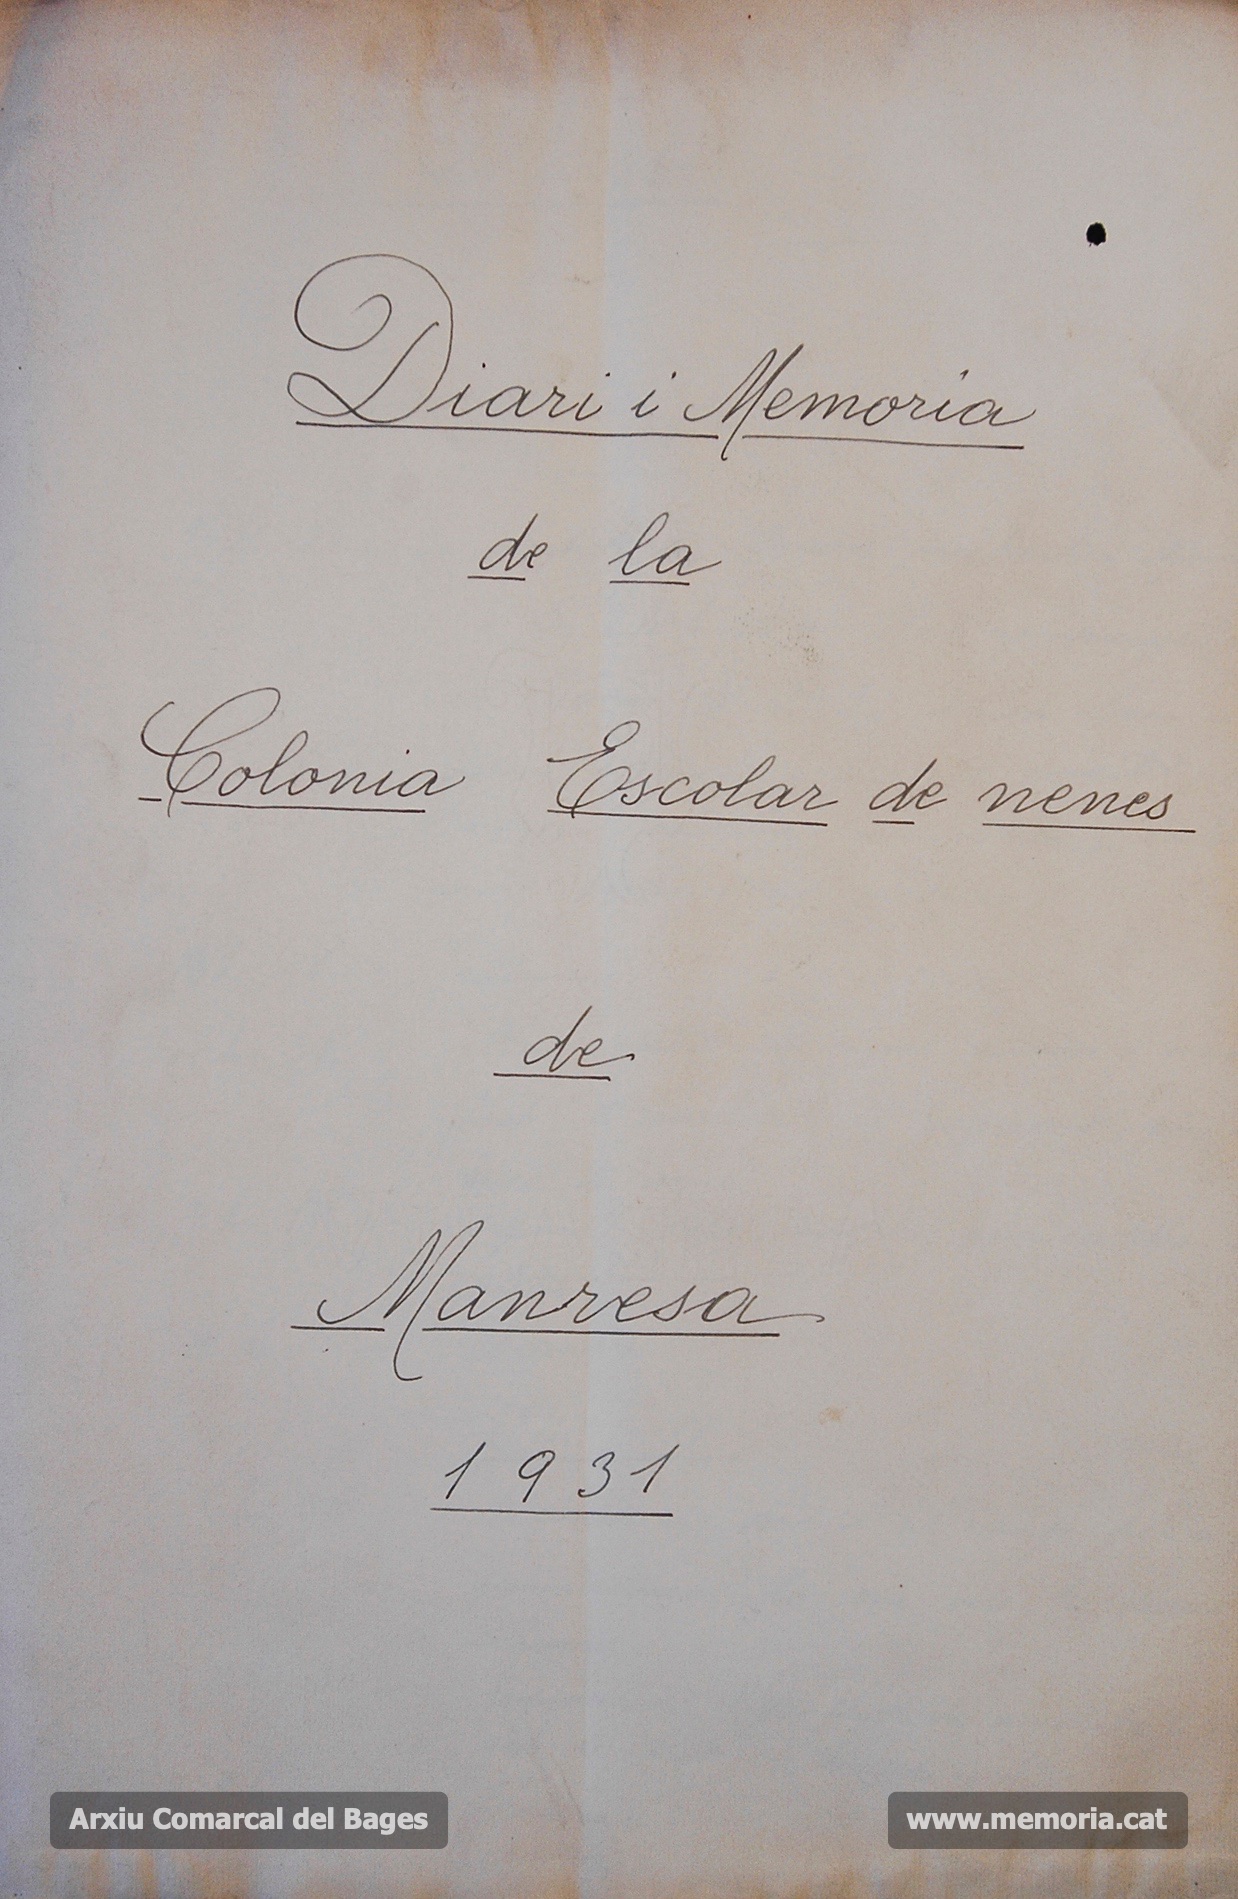 Diari i Memoria
de la
Colonia Escolar de nenes
de
Manresa
1931
Arxiu Comarcal del Bages
www.memoria.cat